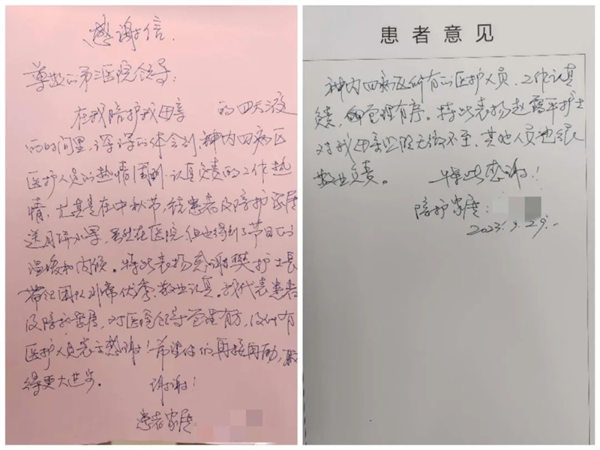 感谢信
尊敬的第三医院领导:
在我陪护我母亲 的四天夜
的时间里,深深的体会到神内四病区
医护人员的热情周到,认真负责的工作热
情,尤其是在中秋节,给患者及陪护家属
送月饼水果,虽然在医院,但也得到了节日的
温馨和问候。特此表扬感谢樊护士长
带领团队非常优秀,敬业认真。我代表患者
及陪护家属,对医院领导管理有方,及所有
医护人员表示感谢!希望你们再接再励,取
得更大进步。
谢谢!
患者家属
患者意见
神内四病区所有的医护人员,工作认真
负责,管理有序。特此表扬赵 平护士
对我母亲照顾无微不至,其他人员也很
敬业负责。 特此感谢!
陪护家属:
2023.9.29.